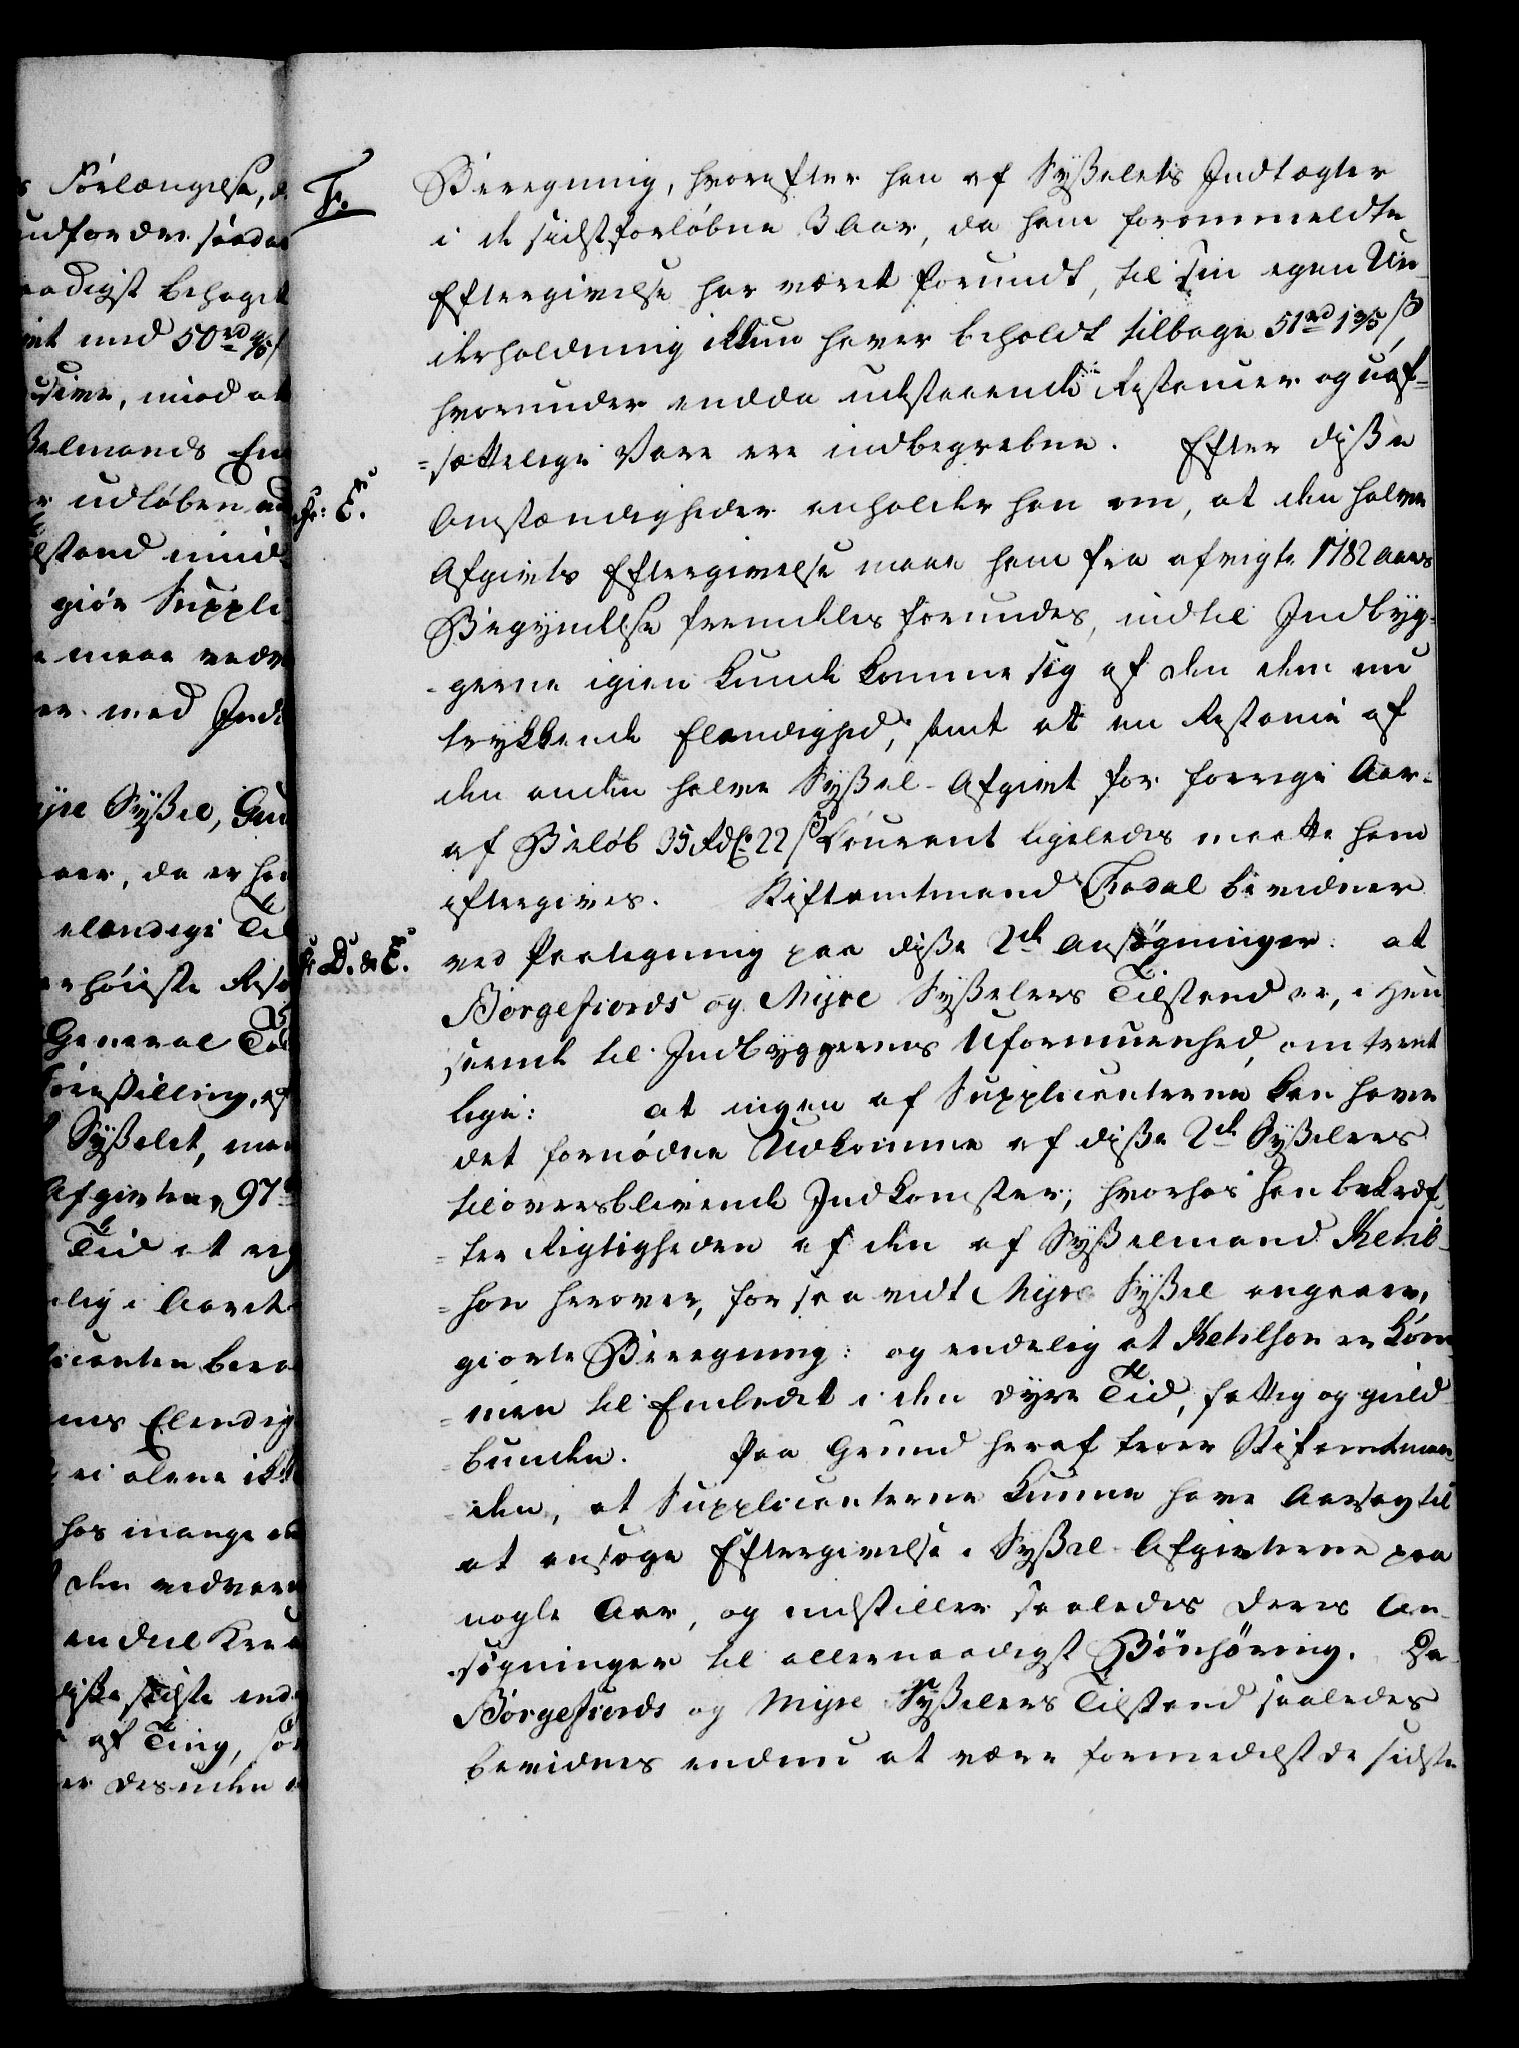 s Forlængelse, d
udfordre saadan
naadigst behaget
int med 50rd 95/
usive, imod at
ßelmands Em
r udløben
lstand imid-
giør Suppli
maae vedv
er med Ind
Myre Syßel, Gud
aar, da er han
elændige Til
r høieste Reso
General Tol
forestilling, af
Syßelet, maa
Afgivten, 97
Tid at
elig i Aaret
licanten bero
nes Elendig
ei alene ikk
hos mange
den vedvar
en deel Krea
diße sidste end
af Ting, saa
er desuden
F.
Beregning, hvorefter han af Syßelets Indtægter
i de sidstforløbne 3 Aar, da ham forommeldte
Eftergivelse har været forundt, til sin egen Un-
derholdning ikkun haver beholdt tilbage 51rd 13 5/ ß,
hvorunder endda udestaaende Restancer og uaf-
=sættelige Vare ere indbegrebne. Efter diße
Fr: E.
Omstændigheder anholder han om, at den halve
Afgivts Eftergivelse maae ham fra afvigte 1782 Aars
Begyndelse fremdeles forundes, indtil Indbyg-
=gerne igien kunde komme sig af den dem nu
trykkende Elendighed, samt at en Restance af
den anden halve Syßel-Afgivt for forrige Aar
af Beløb 35 Rdlr 22 ß Courant ligeledes maatte ham
eftergives. Stiftamtmand Thodal bevidner
Fr D. & E.
ved Paategning paa diße 2de Ansøgninger: at
Borgefiords og Myre Syßelers Tilstand er, i Hen
seende til Indbyggernes Uformuenhed, omtrent
lige: at ingen af Supplicanterne kan have
det fornødne Udkomme af diße 2de Syßelers
tiloversblivende Indkomster; hvorhos han bekræf-
=ter Rigtigheden af den af Syßelmand Ketil-
=son herover, for saa vidt Myre Syßel angaaer,
giorte Beregning: og endelig at Ketilson er kom
=men til Embedet i den dyre Tid, fattig og gield
=bunden. Paa Grund heraf troer Stiftamtman
=den, at Supplicanterne kunne have Aarsag til
at ansøge Eftergivelse i Syßel-Afgivterne paa
nogle Aar, og indstiller saaledes deres An-
=søgninger til allernaadigst Bönhöring. Da
Borgefiords og Myre Syßelers Tilstand saaledes
bevidnes endnu at være formedelst de sidste